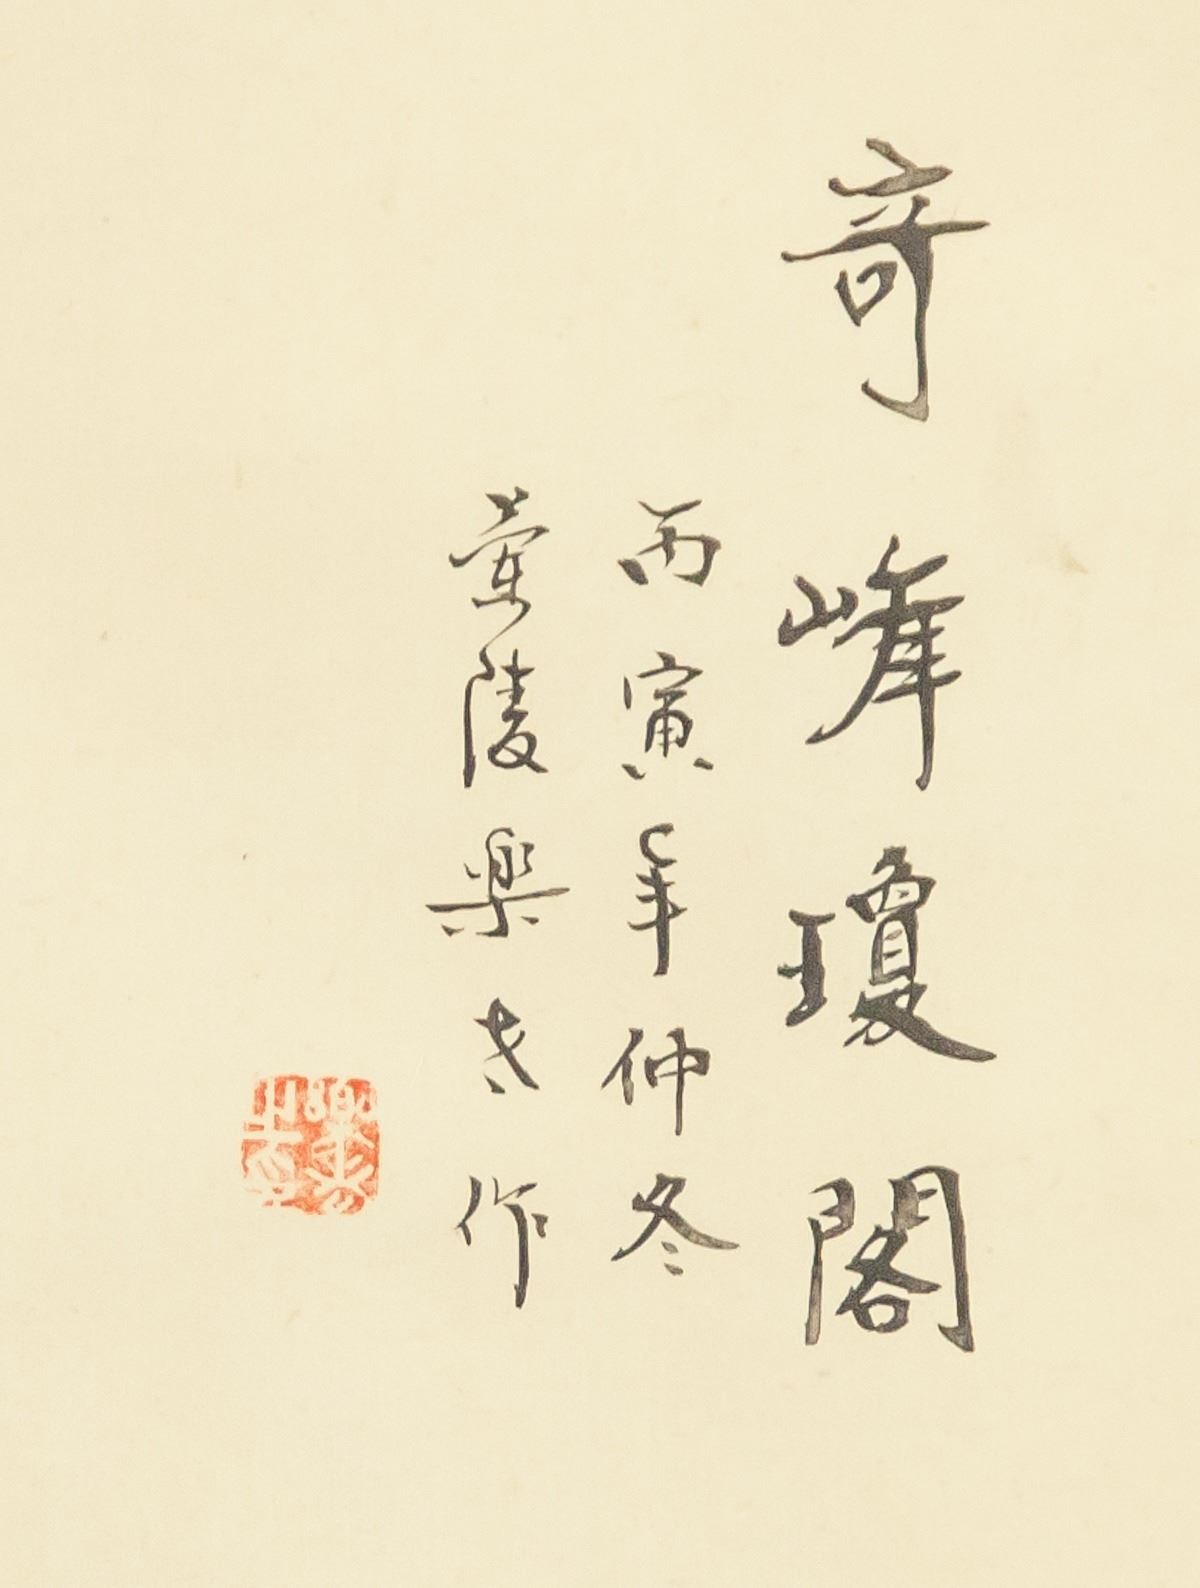 奇峰瓊閣
丙寅年仲冬
蘭陵樂志作